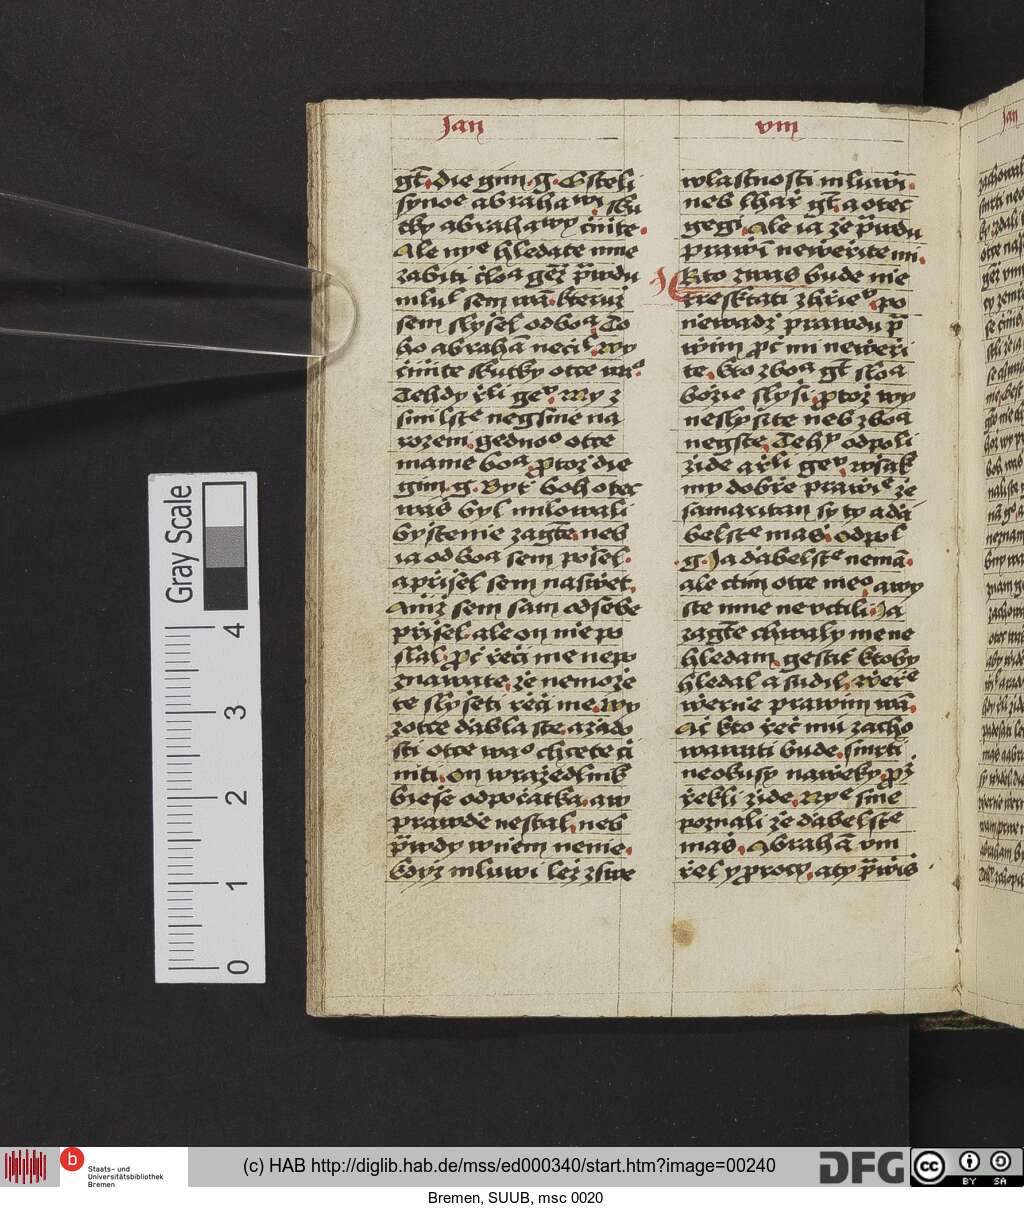 Jan
viii
gt̄. Die gim g. Gsteli
synoe abrahawi, sku
tky abrahawy čiňte.
Ale nye hledate mne
zabiti čloa genž p̄wdu
mluľ sem wā. kteruž
sem slyšel od boa. To
ho abrahā nečil. Wy
činite skutky otce waº.
Tehdy řli geʷ. My z
smilstᵉ negsme na
rozem. gednoº otce
mame boa. protož die
gim g. Byť boh otec
waš byl milowali
byšte mie zagᵗe. neb
ia od boa sem pošel.
a přišel sem na swět.
Aniž sem sam od sebe
přišel. ale on mie po
slal. proč řeči me nepo
znawate. že nemože
te slyšeti řeči me. Wy
z otce ďabla ste. a žádo
sti otce waº chcete či
niti. On wražedlnik
bieše od počatka. a w
prawdě nestal. neb
p̄wdy w niem nenie.
když mluwi lež z swe
wlastnosti mluwi.
neb lhář gt̄ a otec
gegi. Ale ia že p̄wdu
prawi newěřite mi.
Kto z was bude mie
tresktati z hřieʷ. po
niewadž prawdu p̄
wim proč mi newěři
te. kto z boa gt̄ sloa
božie slyši. protož wy
neslyšite neb z boa
negste. Tehʸ odpoli
židé a řli geʷ. wšak
my dobře prawiᵉ že
samaritan sy ty a ďa
belstᵉ maš. Odpoľ
g. Ja ďabelstᵉ nemā.
ale ctim otce meº. a wy
ste mne neuctili. Ja
zagᵗe chwaly me ne
hledam. gestiť ktoby
hledal a sudil. Wěřᵉ
wěrnie prawim wā.
Ač kto řeč mu zacho
wawati bude. smrti
neokusy nawěky. prož
řekli židé. Nyᵉ sme
poznali že ďabelstᵉ
maš. Abrahā vm
řel y procy. a ty p̄wiš
Jan
Gray Scale
4
3
2
1
0
b
Staats- und
Universitätsbibliothek
Bremen
(c) HAB http://diglib.hab.de/mss/ed000340/start.htm?image=00240
DFG
cc BY SA
Bremen, SUUB, msc 0020